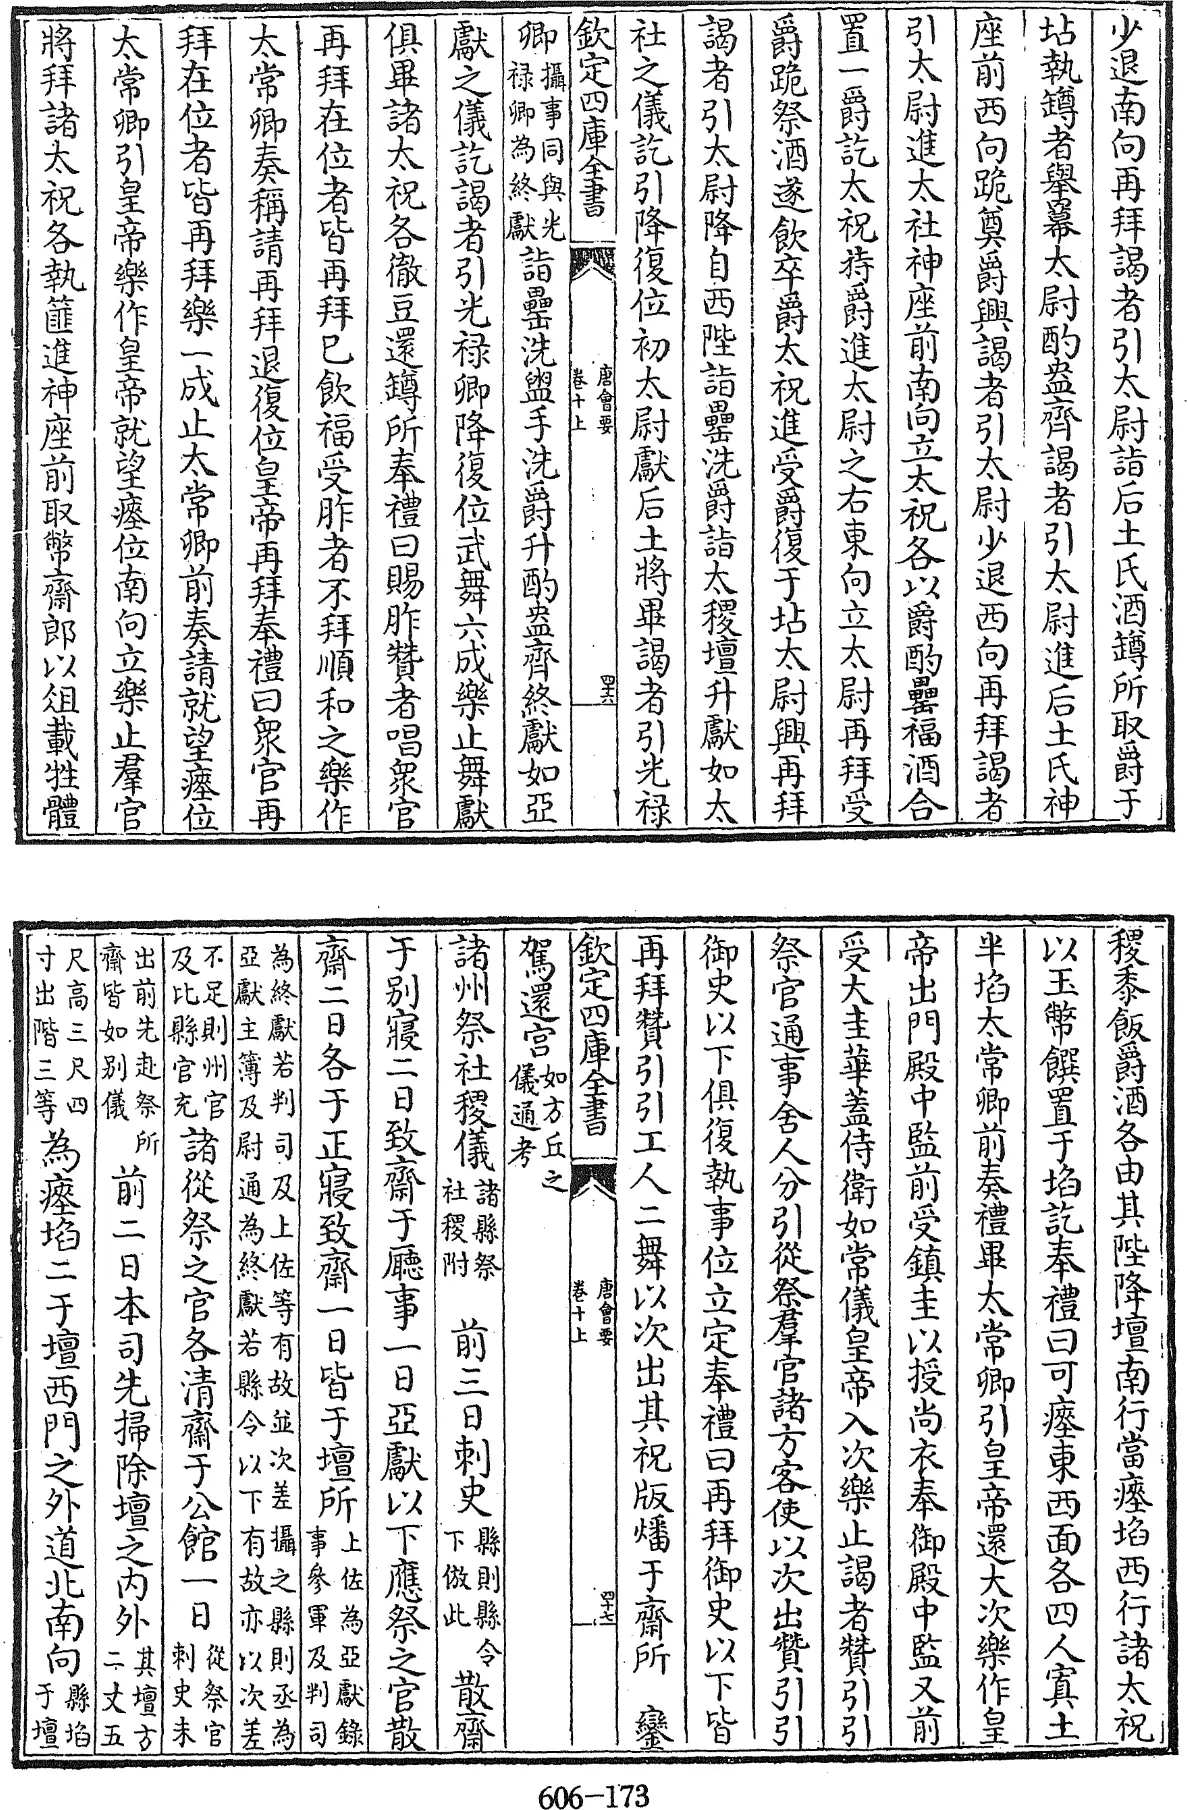 少退南向再拜謁者引太尉詣后土氏酒罇所取爵于
坫執罇者舉冪太尉酌盎齊謁者引太尉進后土氏神
座前西向跪奠爵興謁者引太尉少退西向再拜謁者
引太尉進太社神座前南向立太祝各以爵酌罍福酒合
置一爵訖太祝持爵進太尉之右東向立太尉再拜受
爵跪祭酒遂飲卒爵太祝進受爵復于坫太尉興再拜
謁者引太尉降自西陛詣罍洗爵詣太稷壇升獻如太
社之儀訖引降復位初太尉獻后土將畢謁者引光禄
欽定四庫全書
唐會要
卷十上
四十六
卿攝事同與光禄卿為終獻詣罍洗盥手洗爵升酌盎齊終獻如亞
獻之儀訖謁者引光禄卿降復位武舞六成樂止舞獻
俱畢諸太祝各徹豆還罇所奉禮曰賜胙贊者唱衆官
再拜在位者皆再拜已飲福受胙者不拜順和之樂作
太常卿奏稱請再拜退復位皇帝再拜奉禮曰衆官再
拜在位者皆再拜樂一成止太常卿前奏請就望瘞位
太常卿引皇帝樂作皇帝就望瘞位南向立樂止羣官
將拜諸太祝各執篚進神座前取幣齋郎以俎載牲體
稷黍飯爵酒各由其陛降壇南行當瘞埳西行諸太祝
以玉幣饌置于埳訖奉禮曰可瘞東西面各四人寘土
半埳太常卿前奏禮畢太常卿引皇帝還大次樂作皇
帝出門殿中監前受鎮圭以授尚衣奉御殿中監又前
受大圭華蓋侍衛如常儀皇帝入次樂止謁者贊引引
祭官通事舍人分引從祭羣官諸方客使以次出贊引引
御史以下俱復執事位立定奉禮曰再拜御史以下皆
再拜贊引引工人二舞以次出其祝版燔于齋所　鑾
欽定四庫全書
唐會要
卷十上
四十七
駕還宫如方丘之儀通考
諸州祭社稷儀諸縣祭社稷附　前三日刺史縣則縣令下倣此散齋
于別寢二日致齋于廳事一日亞獻以下應祭之官散
齋二日各于正寢致齋一日皆于壇所上佐為亞獻錄事參軍及判司
為終獻若判司及上佐等有故並次差攝之縣則丞為亞獻主簿及尉通為終獻若縣令以下有故亦以次差
不足則州官及比縣官充諸從祭之官各清齋于公館一日從祭官刺史未
出前先赴祭所齋皆如別儀前二日本司先掃除壇之内外其壇方二丈五
尺高三尺四寸出階三等為瘞埳二于壇西門之外道北南向縣埳于壇
606-173